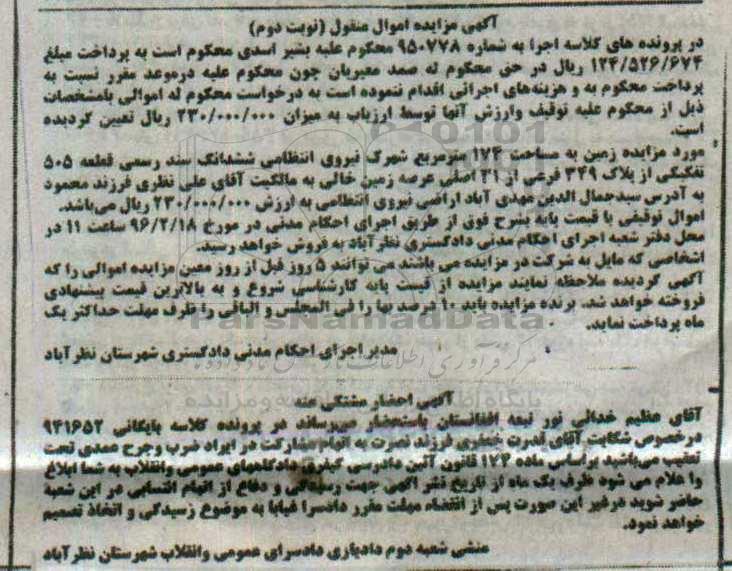 آگهی مزایده اموال منقول (نوبت دوم)
در پرونده های کلاسه اجرا به شماره ۹۵۰۷۷۸ محکوم علیه بشیر اسدی محکوم است به پرداخت مبلغ
۱۲۴/۵۲۶/۶۷۴ ریال در حق محکوم له صمد معبریان چون محکوم علیه درموعد مقرر نسبت به
پرداخت محکوم به و هزینه‌های اجرائی اقدام ننموده است به درخواست محکوم له اموالی بامشخصات
ذیل از محکوم علیه توقیف وارزش آنها توسط ارزیاب به میزان ۲۳۰/۰۰۰/۰۰۰ ریال تعیین گردیده
است.
مورد مزایده زمین به مساحت ۱۷۴ مترمربع شهرک نیروی انتظامی ششدانگ سند رسمی قطعه ۵۰۵
تفکیکی از پلاک ۳۴۹ فرعی از ۳۱ اصلی عرصه زمین خالی به مالکیت آقای علی نظری فرزند محمود
به آدرس سیدجمال الدین مهدی آباد اراضی نیروی انتظامی به ارزش ۲۳۰/۰۰۰/۰۰۰ ریال می‌باشد.
اموال توقیفی با قیمت پایه بشرح فوق از طریق اجرای احکام مدنی در مورخ ۹۶/۲/۱۸ ساعت ۱۱ در
محل دفتر شعبه اجرای احکام مدنی دادگستری نظرآباد به فروش خواهد رسید.
اشخاصی که مایل به شرکت در مزایده می باشند می توانند ۵ روز قبل از روز معین مزایده اموالی را که
آگهی گردیده ملاحظه نمایند مزایده از قیمت پایه کارشناسی شروع و به بالاترین قیمت پیشنهادی
فروخته خواهد شد. برنده مزایده باید ۱۰ درصد بها را فی المجلس و الباقی را ظرف مهلت حداکثر یک
ماه پرداخت نماید.
ParsNamadData
مدیر اجرای احکام مدنی دادگستری شهرستان نظرآباد
آگهی احضار مشتکی عنه
آقای عظیم خدائی نور تبعه افغانستان باستحضار میرساند در پرونده کلاسه بایگانی ۹۴۱۶۵۲
درخصوص شکایت آقای قدرت فرزند نصرت به اتهام مشارکت در ایراد ضرب وجرح عمدی تحت
تعقیب می‌باشید براساس ماده ۱۷۴ قانون آئین دادرسی کیفری دادگاههای عمومی وانقلاب به شما ابلاغ
وا علام می شود ظرف یک ماه از تاریخ نشر آگهی جهت رسیدگی و دفاع از اتهام انتسابی در این شعبه
حاضر شوید درغیر این صورت پس از انقضاء مهلت مقرر دادسرا غیابا به موضوع رسیدگی و اتخاذ تصمیم
خواهد نمود.
منشی شعبه دوم دادیاری دادسرای عمومی وانقلاب شهرستان نظرآباد